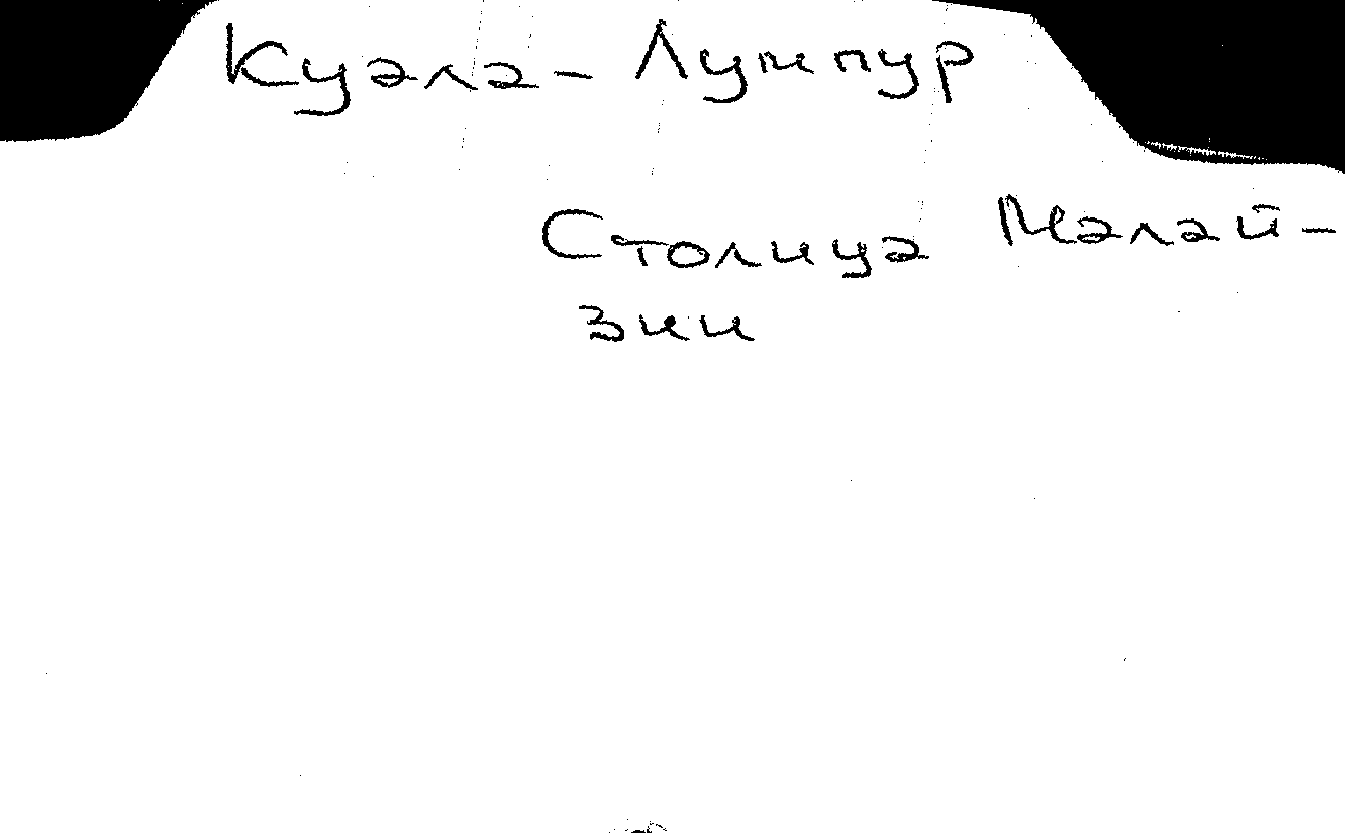 Куала-Лумпур
Столица Малай-
зии